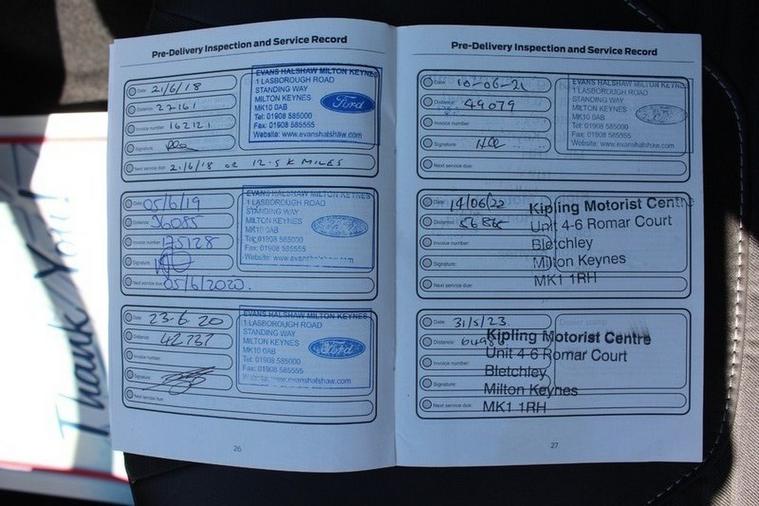 Pre-Delivery Inspection and Service Record
Date: 21/6/18
Distance: 27161
Invoice number: 162121
Signature:
Next service due: 21/6/18 or 12.5K MILES
EVANS HALSHAW MILTON KEYNES
1 LASBOROUGH ROAD
STANDING WAY
MILTON KEYNES
MK10 0AB
Tel: 01908 585000
Fax: 01908 585555
Website: www.evanshalshaw.com
Ford
Date: 05/6/19
Distance: 36085
Invoice number: 175128
Signature:
Next service due: 05/6/2020.
EVANS HALSHAW MILTON KEYNES
1 LASBOROUGH ROAD
STANDING WAY
MILTON KEYNES
MK10 0AB
Tel: 01908 585000
Fax: 01908 585555
Website: www.evanshalshaw.com
Date: 23-6-20
Distance: 42737
Invoice number:
Signature:
Next service due:
EVANS HALSHAW MILTON KEYNES
1 LASBOROUGH ROAD
STANDING WAY
MILTON KEYNES
MK10 0AB
Tel: 01908 585000
Fax: 01908 585555
Website: www.evanshalshaw.com
Ford
26
Pre-Delivery Inspection and Service Record
Date: 10-06-21
Distance: 49079
Invoice number:
Signature:
Next service due:
EVANS HALSHAW MILTON KEYNES
1 LASBOROUGH ROAD
STANDING WAY
MILTON KEYNES
MK10 0AB
Tel: 01908 585000
Fax: 01908 585555
Website: www.evanshalshaw.com
Date: 14/06/22
Distance:
Invoice number:
Signature:
Next service due:
Kipling Motorist Centre
Unit 4-6 Romar Court
Bletchley
Milton Keynes
MK1 1RH
Date: 31/5/23
Distance:
Invoice number:
Signature:
Next service due:
Kipling Motorist Centre
Unit 4-6 Romar Court
Bletchley
Milton Keynes
MK1 1RH
27
Thank You!